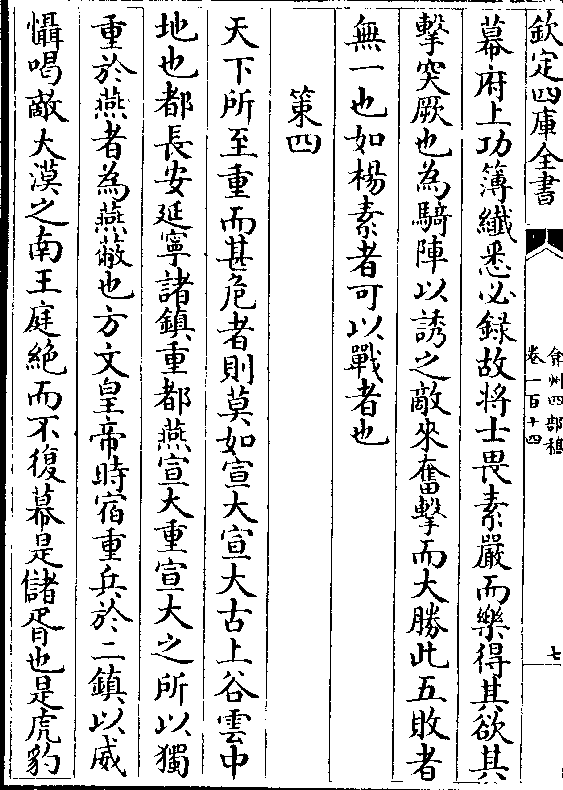 欽定四庫全書
弇州四部稿
卷一百十四
七
幕府上功簿纖悉必録故将士畏素嚴而樂得其欲其
擊突厥也為騎陣以誘之敵來奮擊而大勝此五敗者
無一也如楊素者可以戰者也
第四
天下所至重而甚危者則莫如宣大宣大古上谷雲中
地也都長安延寧諸鎮重都燕宣大重宣大之所以獨
重於燕者為燕蔽也方文皇帝時宿重兵於二鎮以威
懾喝敵大漠之南王庭絶而不復幕是儲胥也是虎豹